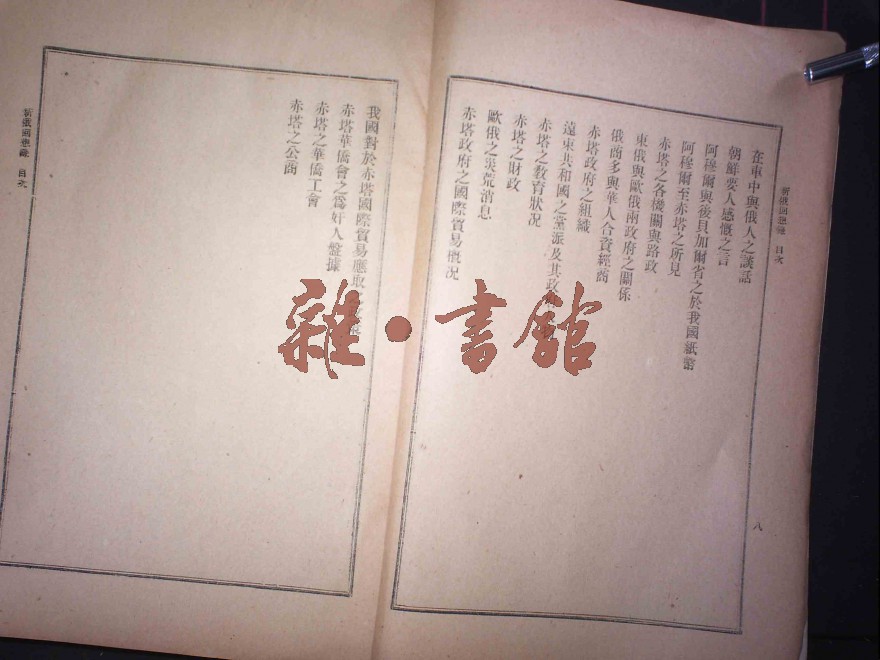 新俄回想錄 目次
在車中與俄人之談話
朝鮮要人感慨之言
阿穆爾與後貝加爾省之於我國紙幣
阿穆爾至赤塔之所見
赤塔之各機關與路政
東俄與歐俄兩政府之關係
俄商多與華人合資經商
赤塔政府之組織
遠東共和國之黨派及其政
赤塔之教育狀况
赤塔之財政
歐俄之災荒消息
赤塔政府之國際貿易概况
八
我國對於赤塔國際貿易應取
赤塔華僑會之爲奸人盤據
赤塔之華僑工會
赤塔之公商
新俄回想錄 目次
雜·書館